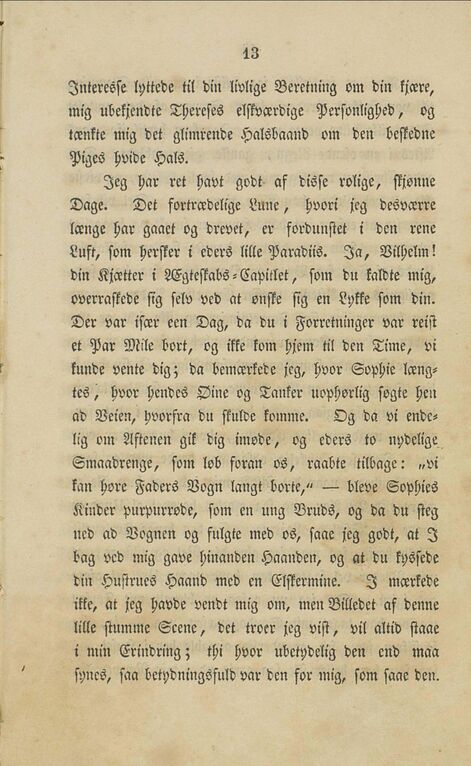 13
Interesse lyttede til din livlige Beretning om din kjære,
mig ubekjendte Thereses elskværdige Personlighed, og
tænkte mig det glimrende Halsbaand om den beskedne
Piges hvide Hals.
Jeg har ret havt godt af disse rolige, skjønne
Dage. Det fortrædelige Lune, hvori jeg desværre
længe har gaaet og drevet, er fordunstet i den rene
Luft, som hersker i eders lille Paradiis. Ja, Vilhelm!
din Kjætter i Ægteskabs-Capitlet, som du kaldte mig,
overraskede sig selv ved at ønske sig en Lykke som din.
Der var især een Dag, da du i Forretninger var reist
et Par Mile bort, og ikke kom hjem til den Time, vi
kunde vente dig; da bemærkede jeg, hvor Sophie læng-
tes, hvor hendes Øine og Tanker uophørlig søgte hen
ad Veien, hvorfra du skulde komme. Og da vi ende-
lig om Aftenen gik dig imøde, og eders to nydelige
Smaadrenge, som løb foran os, raabte tilbage: „vi
kan høre Faders Vogn langt borte,“ — bleve Sophies
Kinder purpurrøde, som en ung Bruds, og da du steg
ned ad Vognen og fulgte med os, saae jeg godt, at I
bag ved mig gave hinanden Haanden, og at du kyssede
din Hustrues Haand med en Elskermine. I mærkede
ikke, at jeg havde vendt mig om, men Billedet af denne
lille stumme Scene, det troer jeg vist, vil altid staae
i min Erindring; thi hvor ubetydelig den end maa
synes, saa betydningsfuld var den for mig, som saae den.